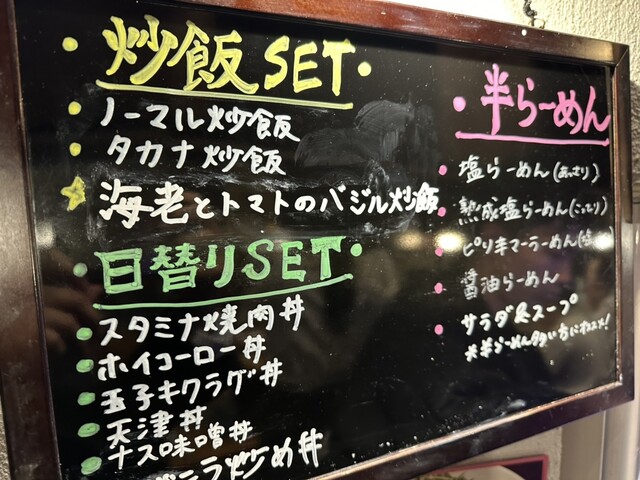 炒飯SET
ノーマル炒飯
タカナ炒飯
海老とトマトのバジル炒飯
日替りSET
スタミナ焼肉丼
ホイコーロー丼
玉子キクラゲ丼
天津丼
ナス味噌丼
ニラ炒め丼
半らーめん
塩らーめん(あっさり)
熟成塩らーめん(こってり)
ピリ辛マーラーめん(塩
醤油らーめん
サラダ&スープ